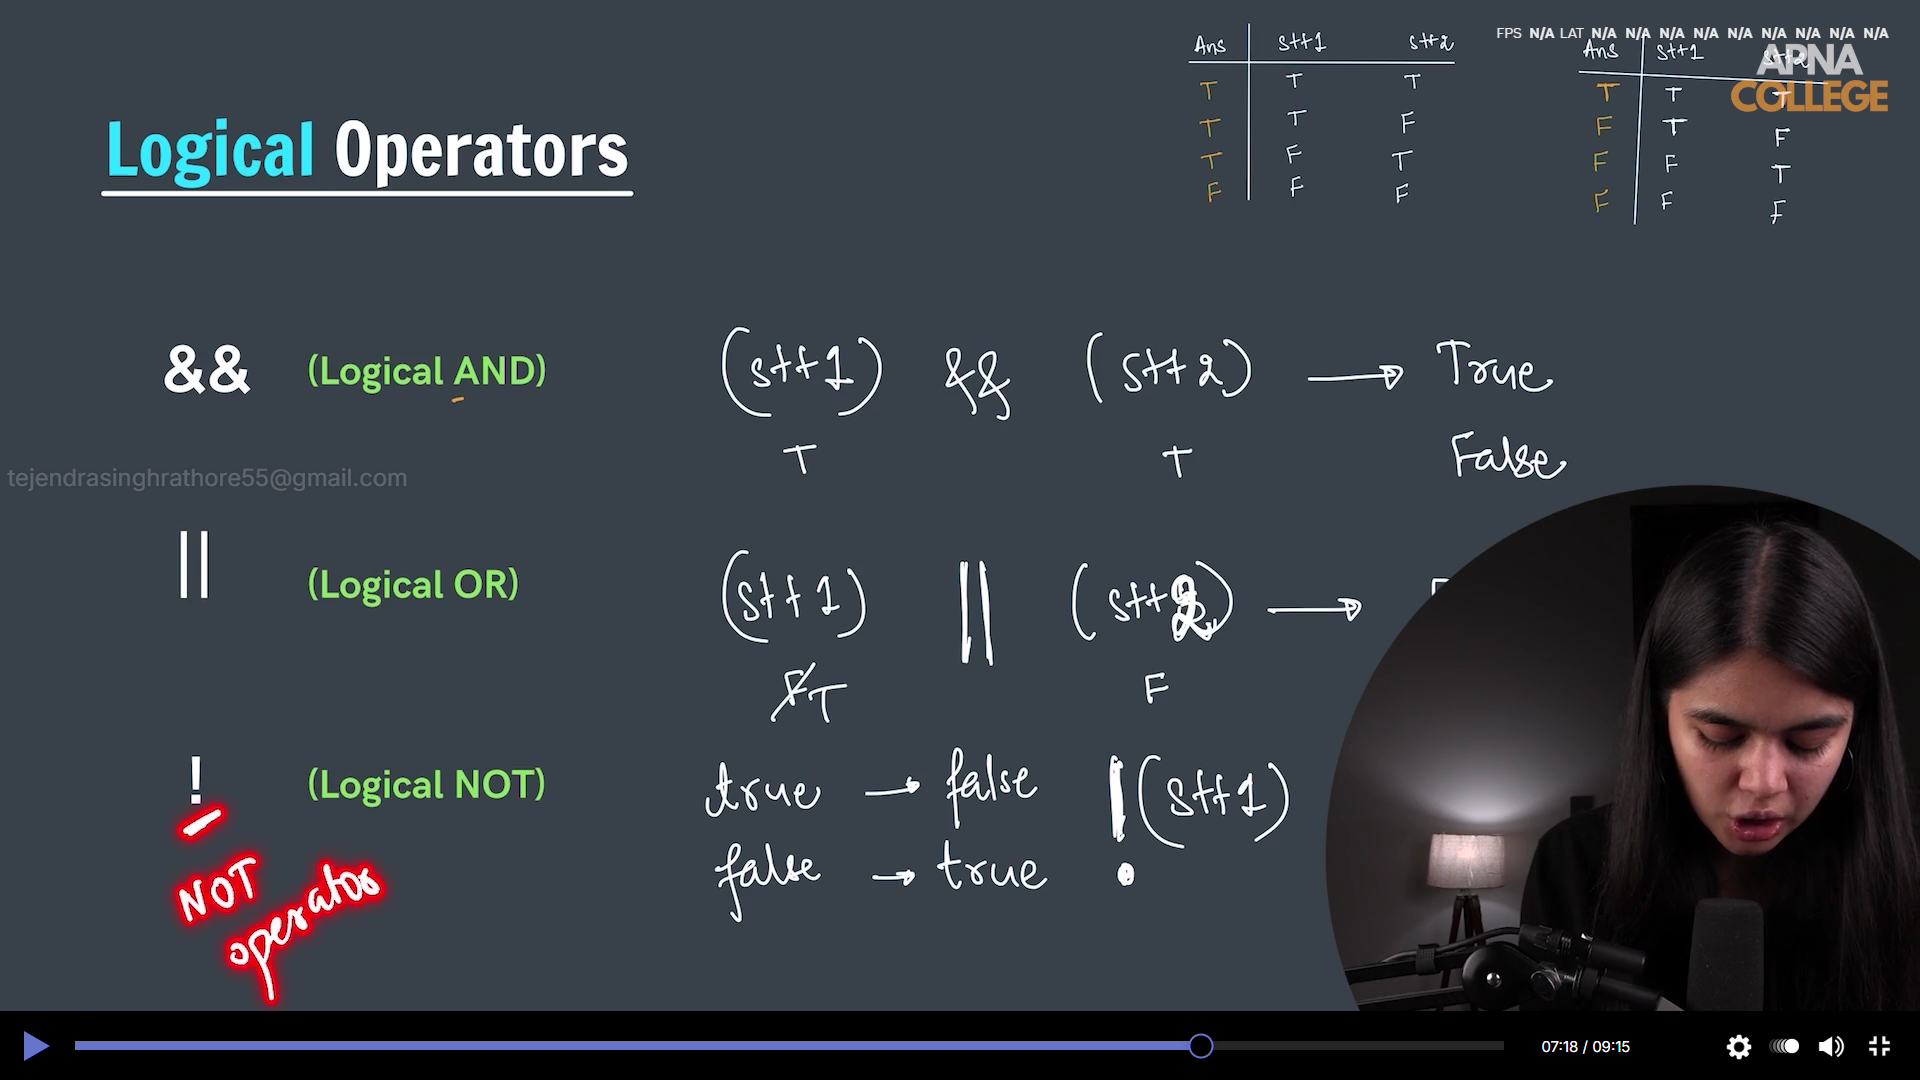 FPS N/A LAT N/A N/A N/A N/A N/A N/A N/A N/A N/A
APNA
COLLEGE
Ans stt1 stt2
T T T
T T F
T F T
F F F
Ans stt1 stt2
T T T
F T F
F F T
F F F
Logical Operators
&& (Logical AND) (stt1) && (stt2) → True
T T False
tejendrasinghrathore55@gmail.com
|| (Logical OR) (stt1) || (stt2) →
F T F
! (Logical NOT) true → false ! (stt1)
false → true
NOT
operator
07:18 / 09:15